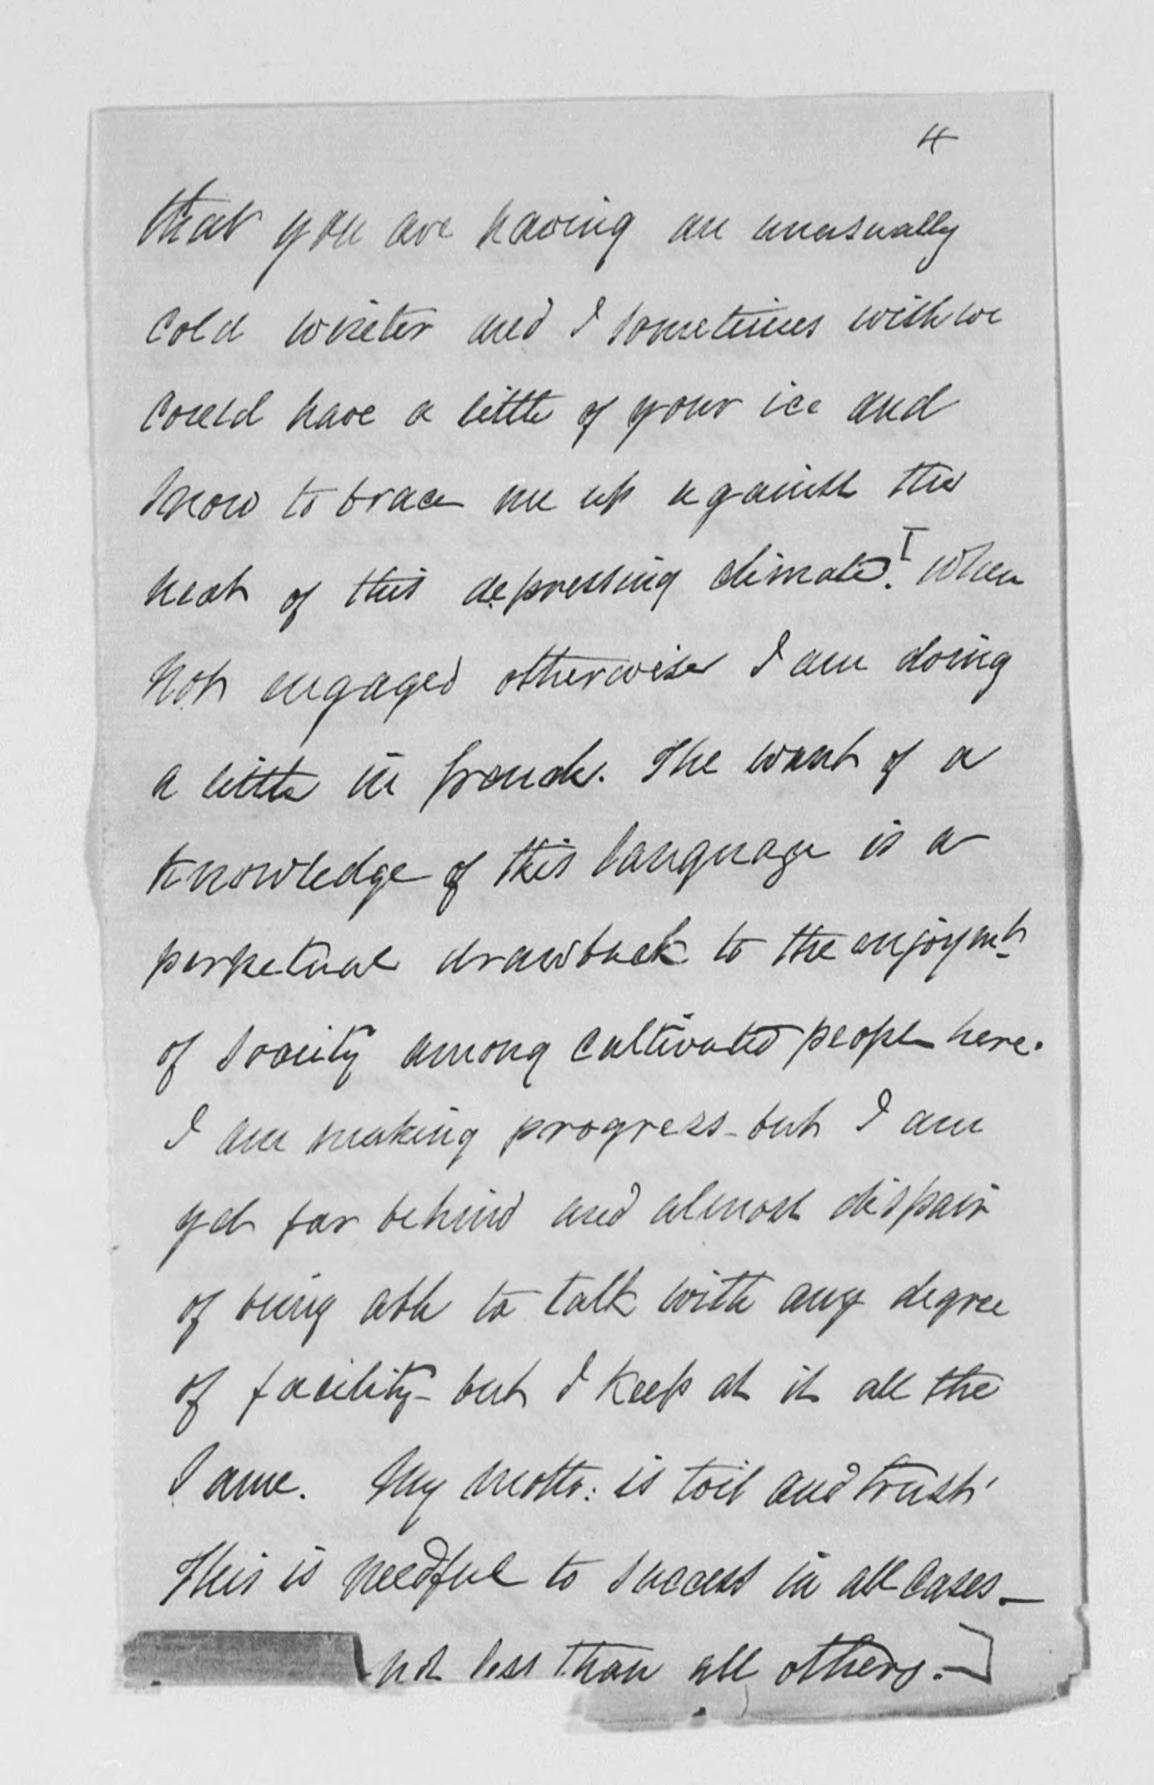 4
that you are having an unusually
cold winter and I sometimes wish we
could have a little of your ice and
snow to brace me up against the
heat of this depressing climate. [When
not engaged otherwise I am doing
a little in french. The want of a
knowledge of this language is a
perpetual drawback to the enjoymt
of society among cultivated people here.
I am making progress - but I am
yet far behind and almost dispair
of being able to talk with any degree
of facility - but I keep at it all the
same. My motto: is toil and trust'
This is needful to success in all cases -
not less than all others. -]